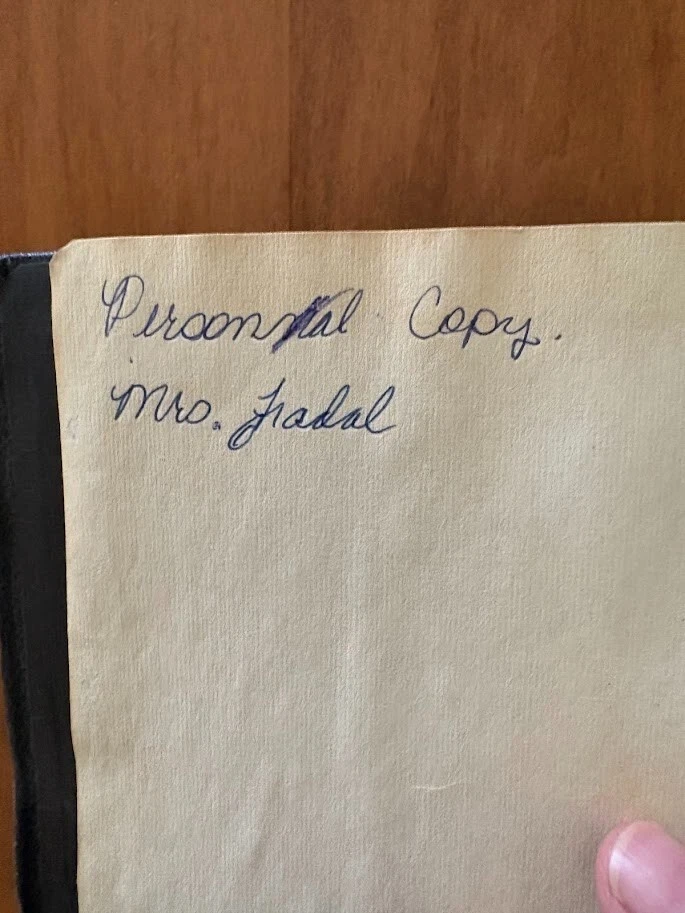 Personal Copy.
Mrs. Fradal